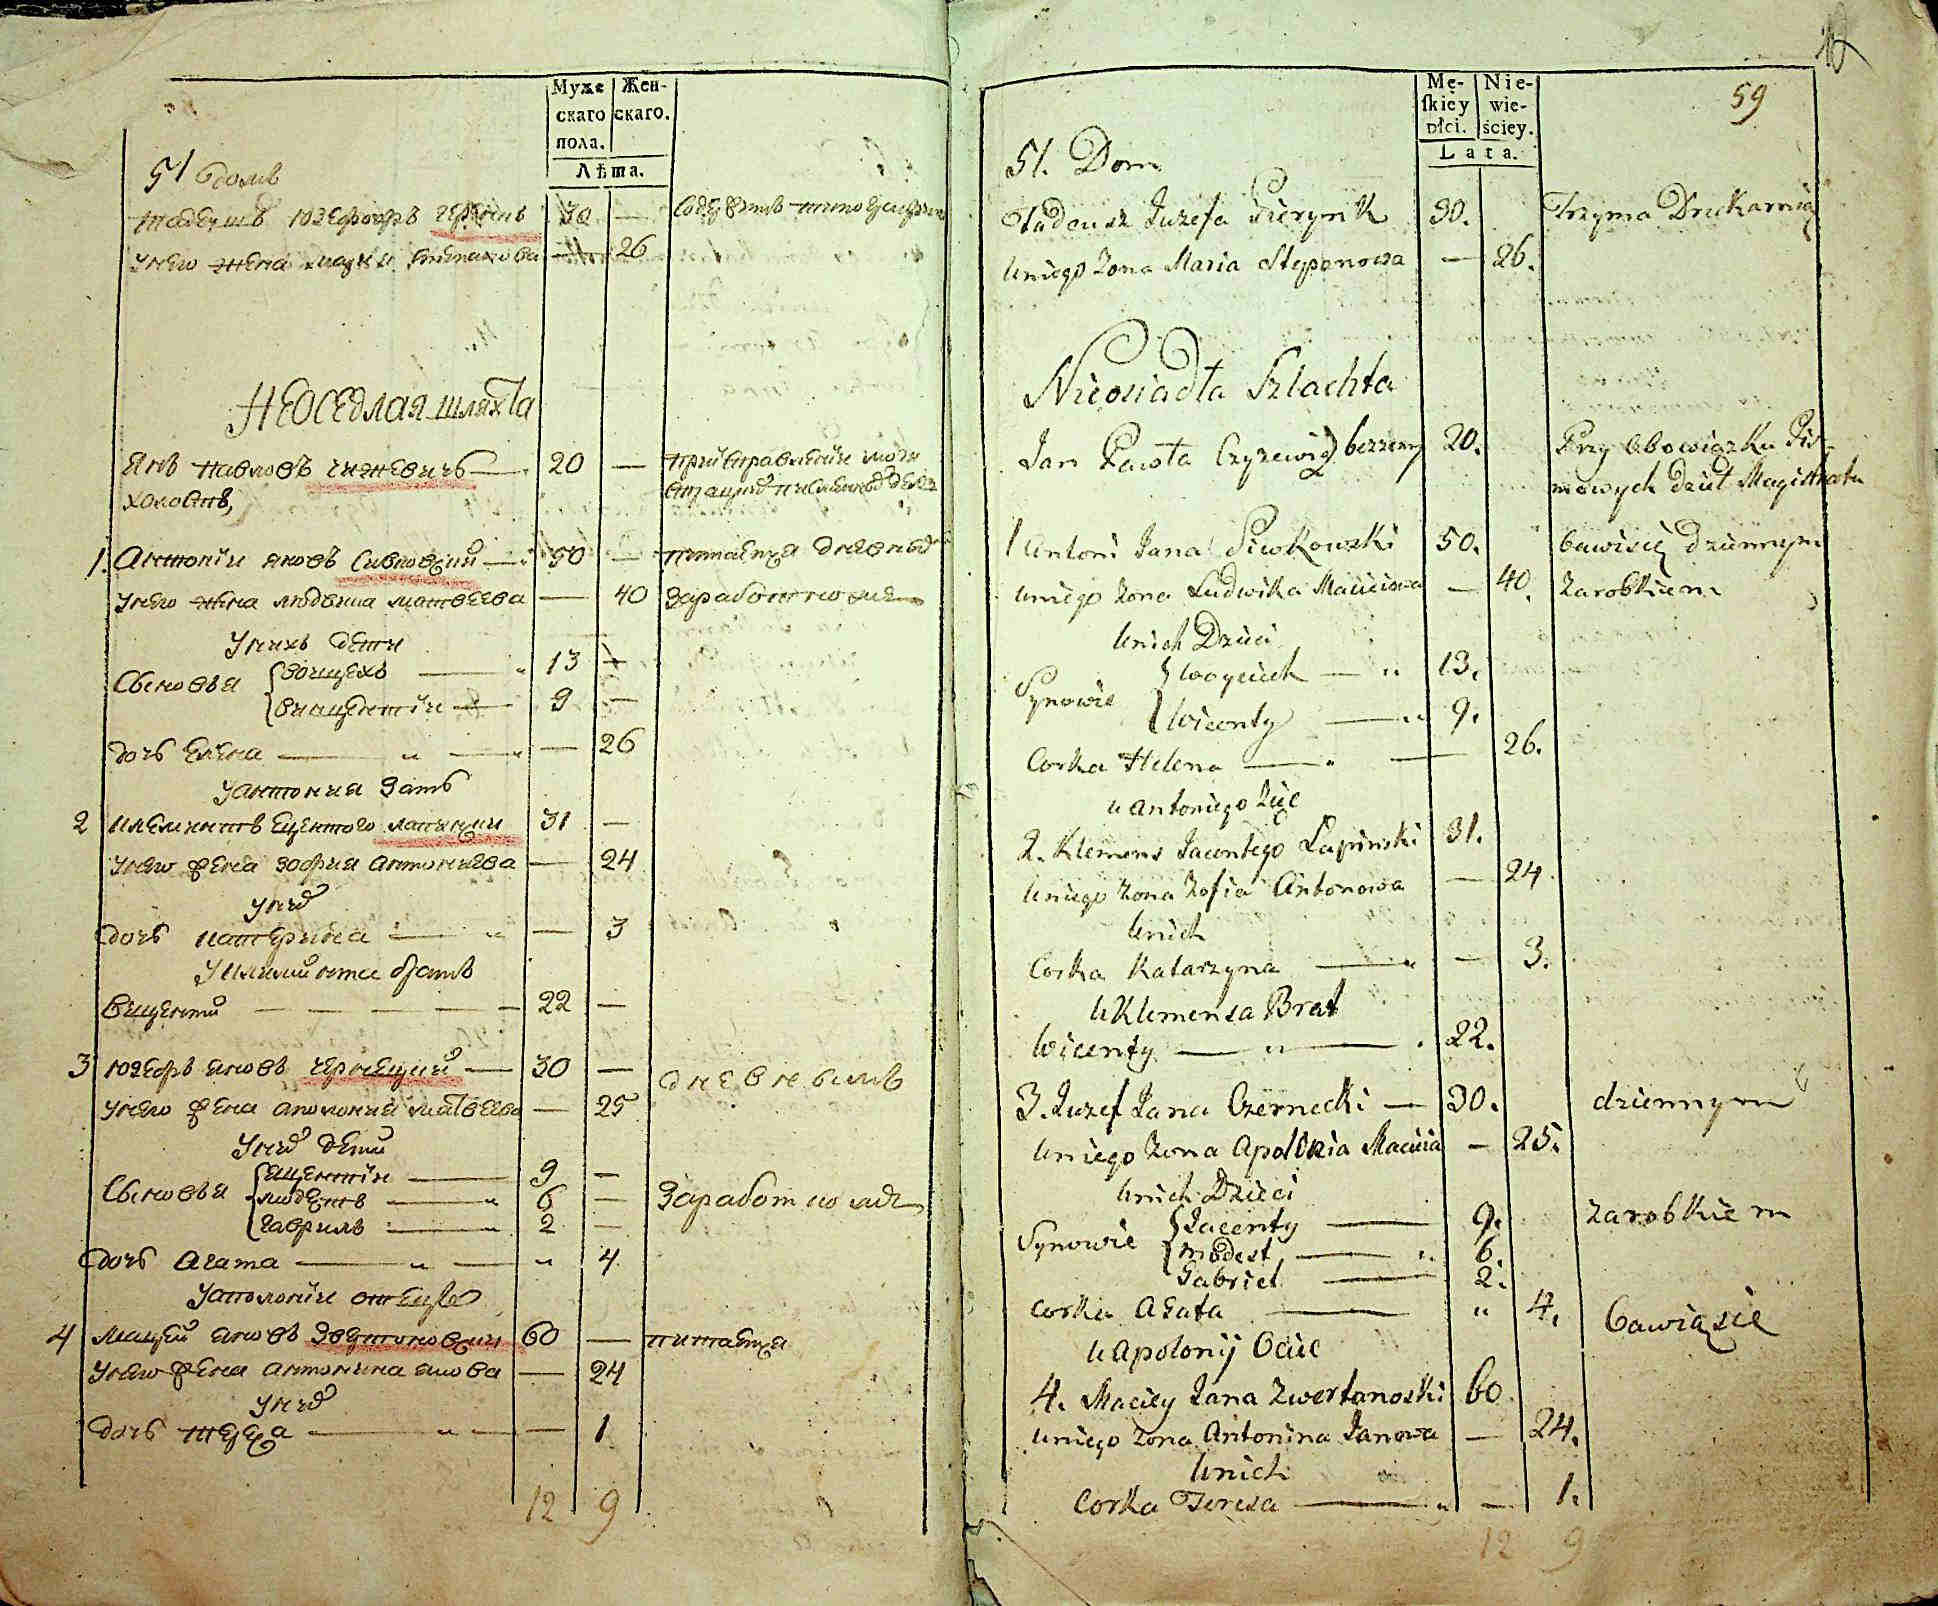 Муже
скаго
пола.
Жен-
скаго.
Лѣта.
51 домъ
тадеушъ юзефовъ 30 —
унего жена марья степанова — 26
НЕОСЕДЛАЯ шляхта
янъ павловъ чижевичъ — 20 —
холостъ,
1. Антоній яновъ Сивковский — 50 — питается дневнымъ
унего жена людвика матвеева — 40 заработкомъ
унихъ дети
Сыновья { войцехъ — 13 —
{ викентій — 9 —
дочь елена — 26
у антонія зять
2 клеминтъ яцентого лапинский 31 —
унего жена зофия антониева — 24
унихъ
дочь катерина — 3
у клеминта братъ
викентий — 22 —
3 юзефъ яновъ чернецкий — 30 — дневнымъ
унего жена аполония матвеева — 25
унихъ дети
Сыновья { яцентій — 9 —
{ модестъ — 6 — заработкомъ
{ гаврилъ — 2 —
дочь агата — 4
у аполоніи отецъ
4 мацей яновъ 60 — питается
унего жена антонина янова — 24
унихъ
дочь тереса — 1
12 9
59
Mę-
skiey
płci.
Nie-
wie-
ściey.
Lata.
51. Dom
Tadeusz Juzefa Pierynk 30. Trzyma Drukarnią
Uniego Zona Maria Stepanowa — 26.
Nieosiadła Szlachta
Jan Pawła Czyzewicz bezzenny 20. Przy Obowiązku Pis-
mowych dzieł Magistratu
1 Antoni Jana Siwkowski 50. bawisię dziennym
Uniego Zona Ludwika Macieiowa — 40. Zarobkiem
Unich Dzieci
Synowie { Woyciech — 13.
{ Wicenty — 9.
Corka Helena — 26.
u Antoniego Zięć
2. Klemens Jacentego Lapinski 31.
Uniego Zona Zofia Antonowa — 24
Unich
Corka Katarzyna — 3.
u Klemensa Brat
Wicenty — 22.
3. Juzef Jana Czernecki — 30. dziennym
Uniego Zona Apolonia Macieia — 25.
Unich Dzieci
Synowie { Jacenty — 9. zarobkiem
{ Modest — 6.
Gabriel — 2.
Corka Agata — 4. bawiąsie
u Apolonij Ociec
4. Maciey Jana Zwertanoski 60
uniego Zona Antonina Janowa — 24.
Unich
Corka Teresa — 1.
12 9